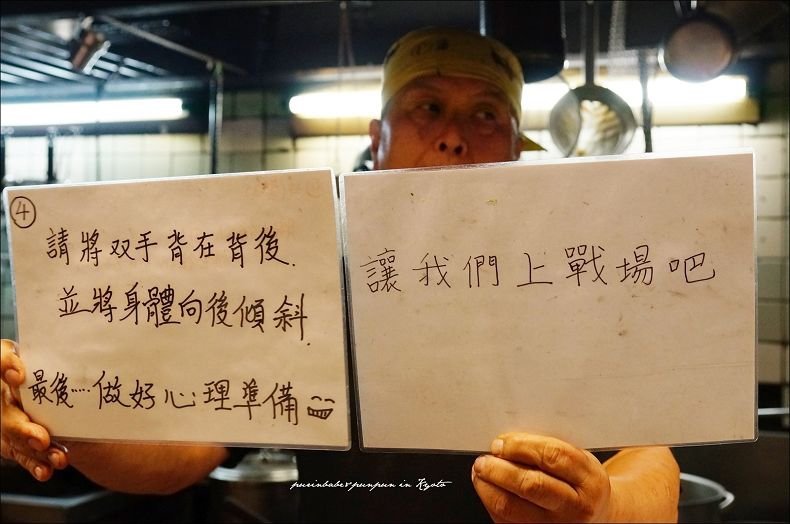 ④
請將双手背在背後.
並將身體向後傾斜.
最後……做好心理準備
讓我們上戰場吧
purinbabe&punpun in Kyoto